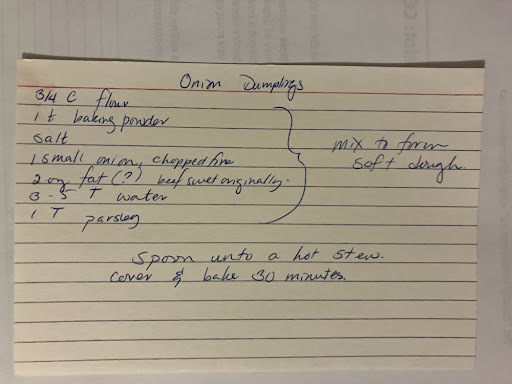 Onion Dumplings
3/4 C flour
1 t baking powder
salt
1 small onion, chopped fine
2 oz fat (?) beef suet originally.
3-5 T water
1 T parsley
mix to form
soft dough.
Spoon unto a hot stew.
cover & bake 30 minutes.